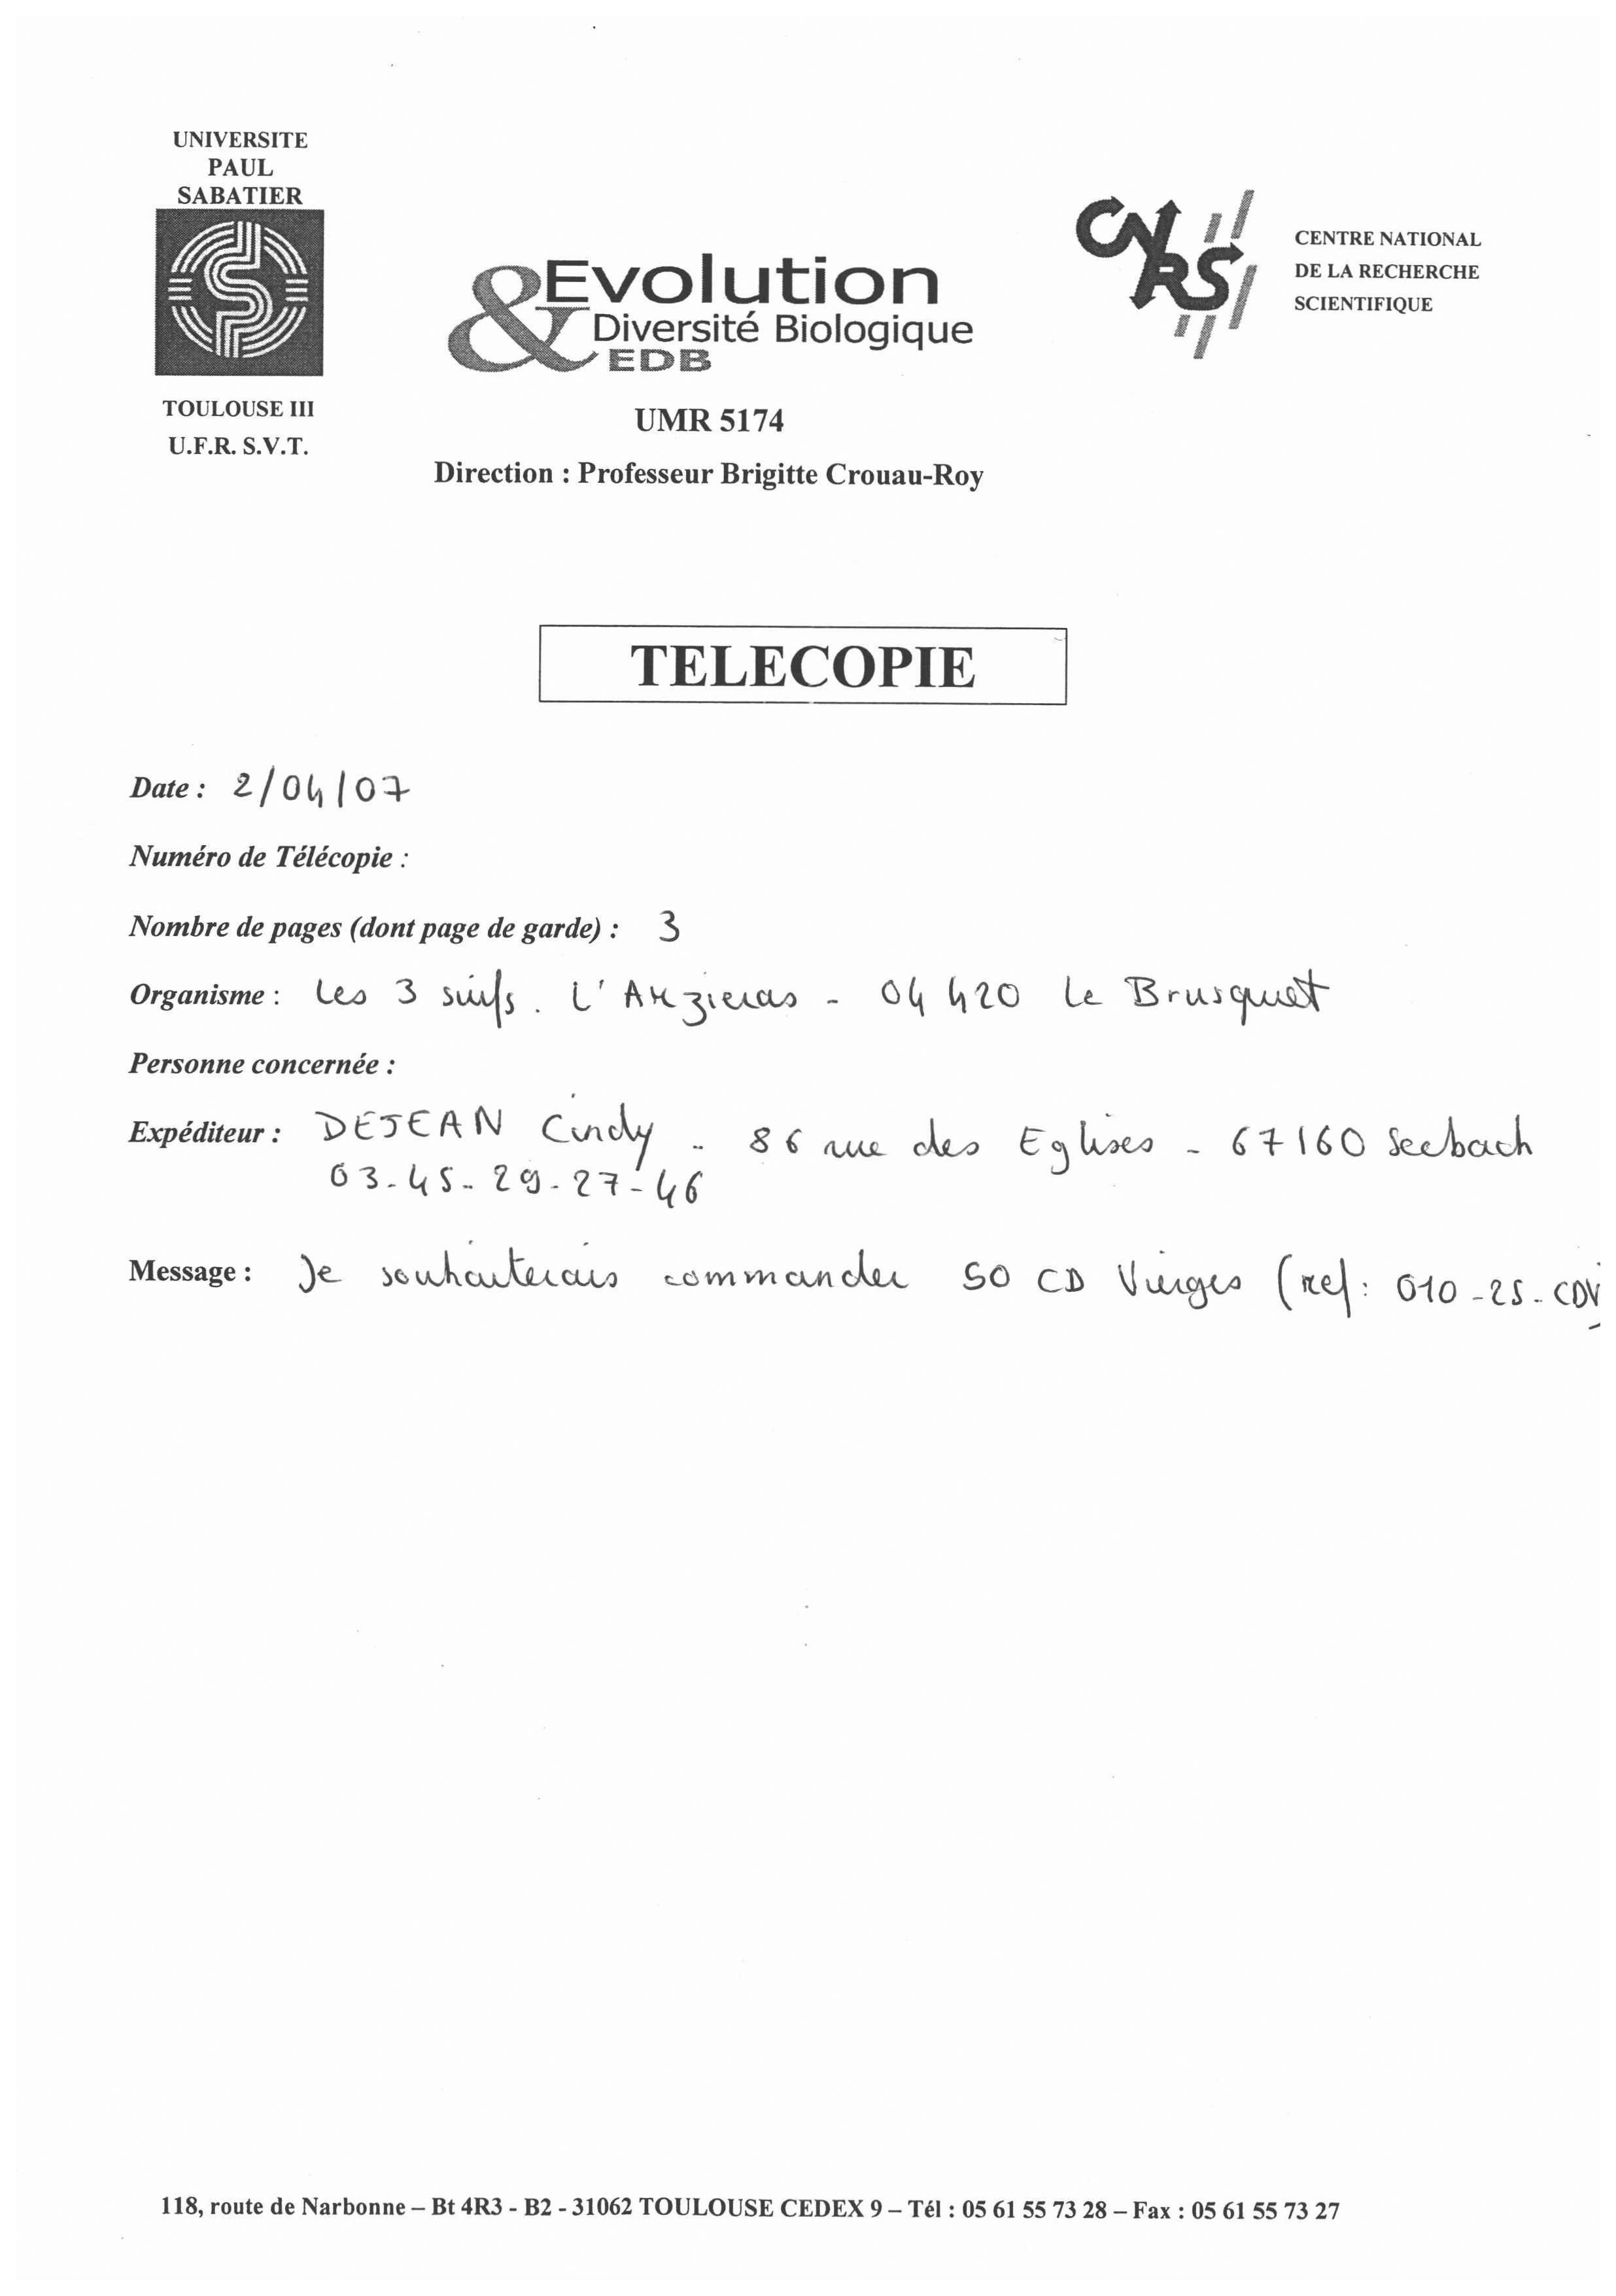 UNIVERSITE
PAUL
SABATIER
TOULOUSE III
U.F.R. S.V.T.
&Evolution
Diversité Biologique
EDB
UMR 5174
Direction : Professeur Brigitte Crouau-Roy
CNRS
CENTRE NATIONAL
DE LA RECHERCHE
SCIENTIFIQUE
TELECOPIE
Date : 2/04/07
Numéro de Télécopie :
Nombre de pages (dont page de garde) : 3
Organisme : Les 3 suifs. L' - 04 420 Le Brusquet
Personne concernée :
Expéditeur : DEJEAN Cindy - 86 rue des Eglises - 67160 Seebach
03-45-29-27-46
Message : Je souhaiterais commander 50 CD Vierges (ref: 010-25-CDV
118, route de Narbonne – Bt 4R3 - B2 - 31062 TOULOUSE CEDEX 9 – Tél : 05 61 55 73 28 – Fax : 05 61 55 73 27